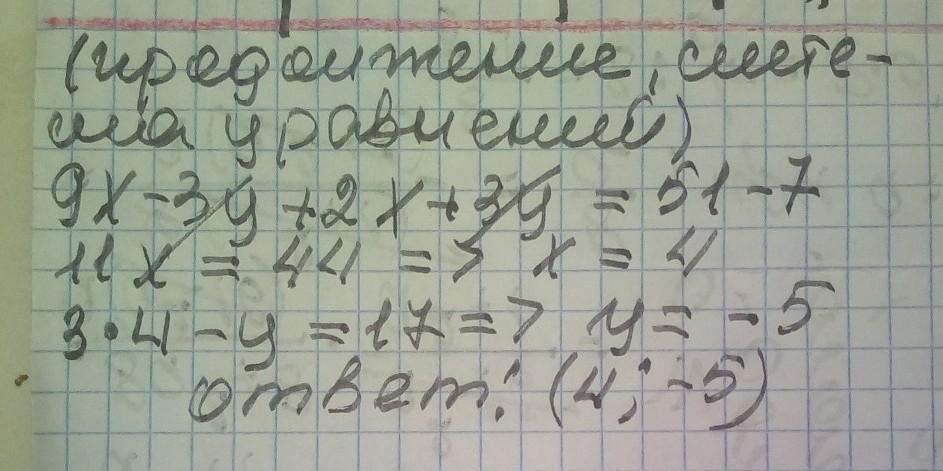 (продолжение, систе-
ма уравнений)
9x - 3y + 2x + 3y = 51 - 7
11x = 44 => x = 4
3·4 - y = 17 => y = -5
ответ: (4; -5)